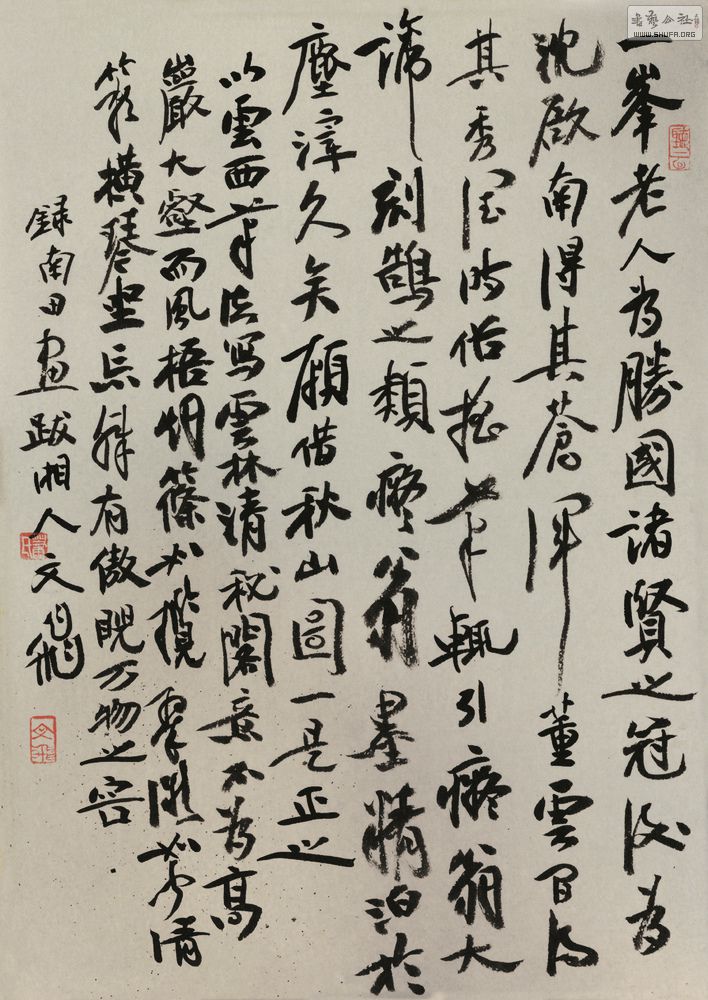 一峯老人为勝國諸賢之冠後为
沈啟南得其蒼渾董雲間得
其秀潤時俗搖筆輒引癡翁大
諦刻鵠之類癡翁墨精汩於
塵滓久矣願借秋山圖一是正之
以雲西筆法寫雲林清秘閣意不为高
嚴大壑而風梧烟篠如攬翠微如聞清
籟橫琴坐忘殊有傲睨万物之容
錄南田画跋湘人文伯飛
文飛
書藝公社
WWW.SHUFA.ORG